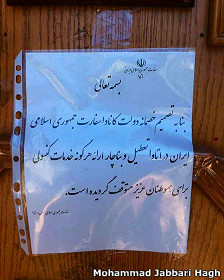 سفارت جمهوری اسلامی ایران
بسمه تعالی
بنا به تصمیم خصمانه دولت کانادا سفارت جمهوری اسلامی
ایران در اتاوا تعطیل و بناچار ارائه هرگونه خدمات کنسولی
برای هموطنان عزیز متوقف گردیده است.
Mohammad Jabbari Hagh